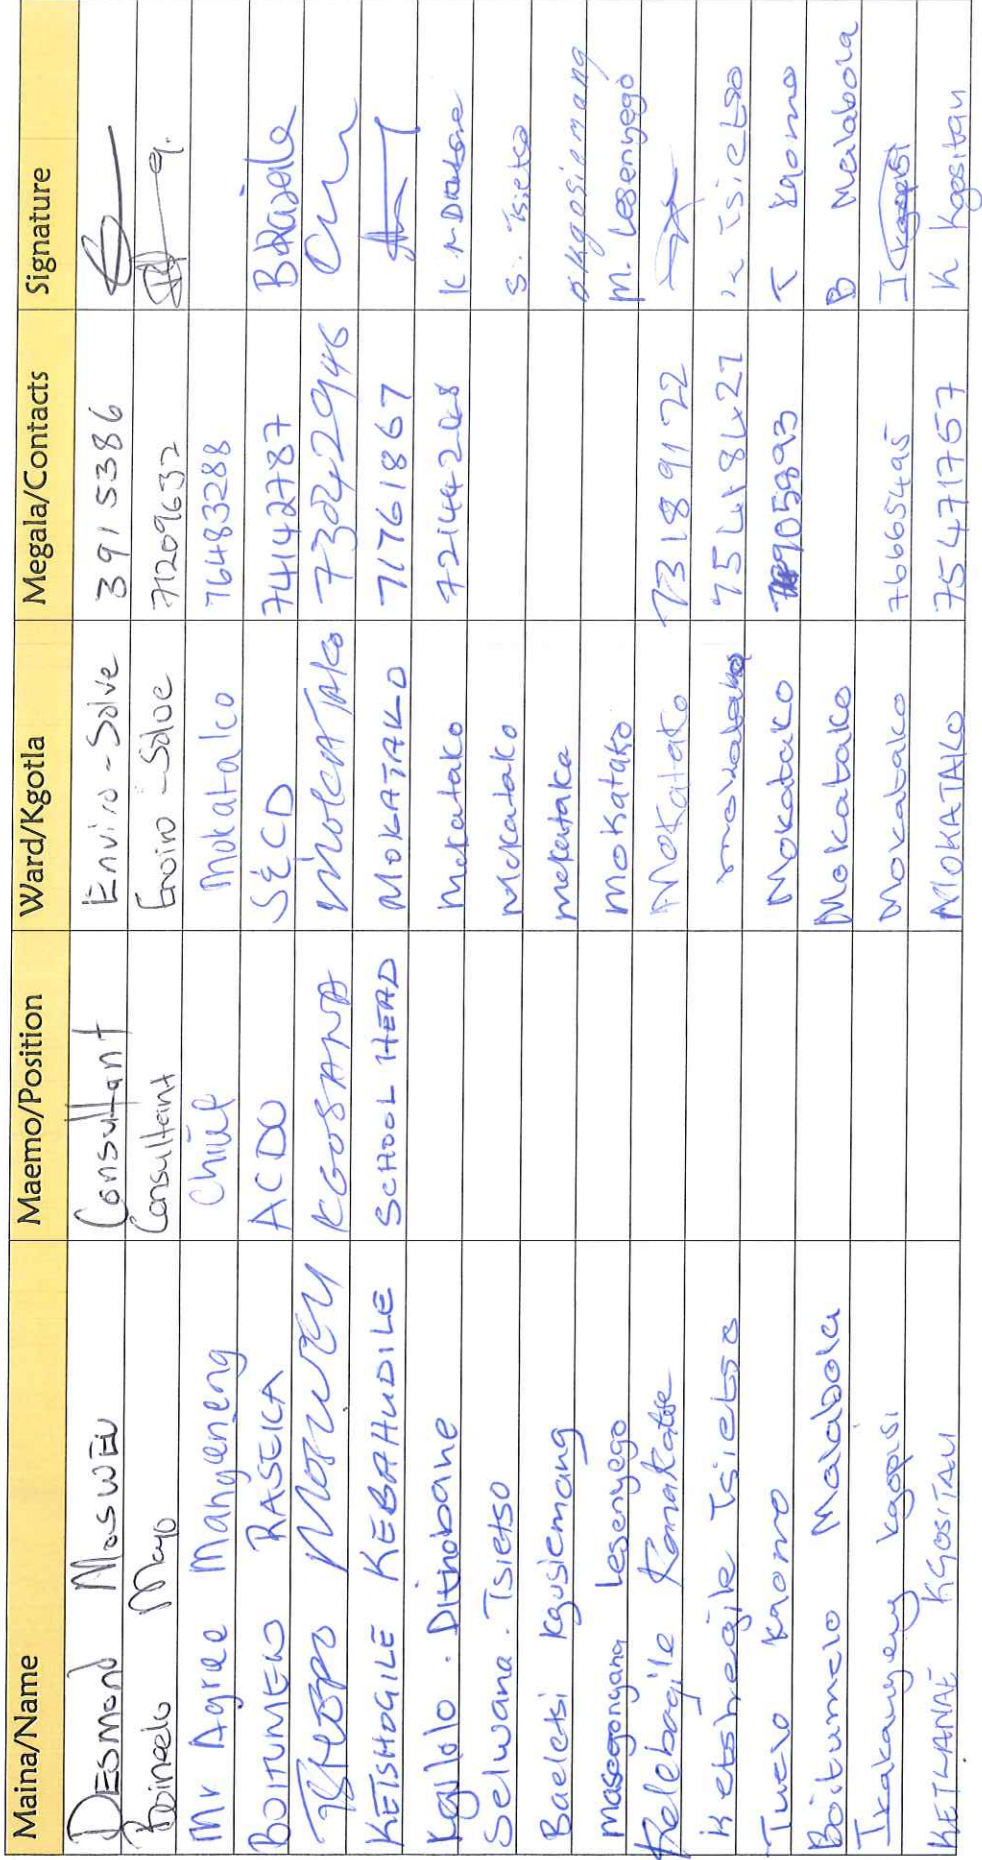 Maina/Name Maemo/Position Ward/Kgotla Megala/Contacts Signature
DESMOND MOSWEU Consultant Enviro-Solve 3915386
Boineelo Moyo Consultant Enviro-Solve 71209632
Mr Agree Mangeneng Chief Mokatako 76483288
BOITUMELO RASEKA ACDO S&CD 74142787
TSHEPO MOSWEU KGOSANA MOKATAKO
KEISHOGILE KEBAHUDILE SCHOOL HEAD MOKATAKO 71761867
Kgololo. Ditnobane Mokatako
Selwana. Tsietso Mokatako S. Tsietso
Baeletsi Kgosiemang Mokatako
Masegonyana Lesenyego Mokatako M. Lesenyego
Kelebogile Ramakatse Mokatako 73189122
Ketshregile Tsietso K Tsietso
Tuelo Kaomo Mokatako T Kaomo
Boitumelo Malabola Mokatako B Malabola
Ikakanyeng Kgopisi Mokatako 76665495 I Kgopisi
KETLANAE KGOSITAU MOKATAKO 75471757 K Kgositau